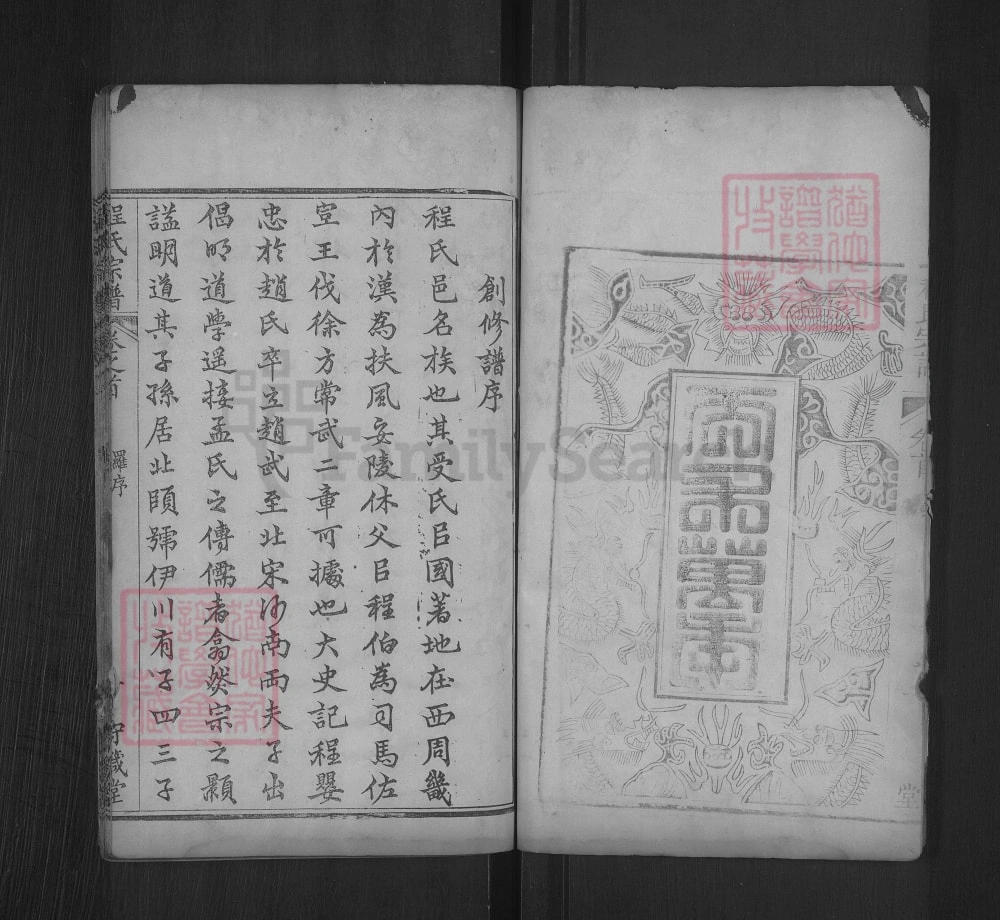 創修譜序
程氏邑名族也其受氏㠯國著地在西周畿
內於漢為扶風安陵休父㠯程伯為司馬佐
宣王伐徐方常武二章可據也大史記程嬰
忠於趙氏卒立趙武至北宋河南兩夫子出
倡明道學遥接孟氏之傳儒者翕然宗之顥
謚明道其子孫居北頤號伊川有子四三子
程氏宗譜
卷之首
羅序
守識堂
FamilySearch